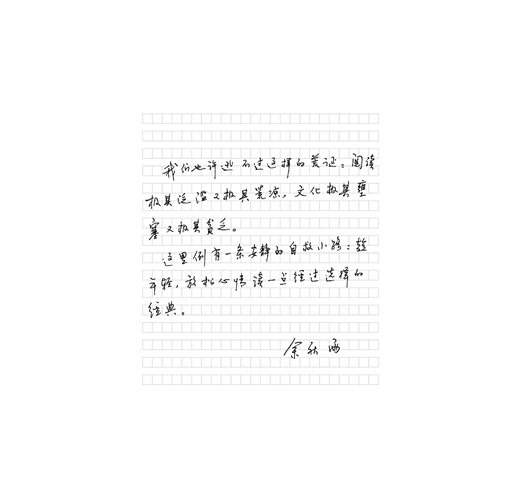 我们也许逃不过这样的悖论：阅读
极其泛滥又极其荒凉，文化极其壅
塞又极其贫乏。
这里倒有一条安静的自救小路：趁
年轻，放松心情读一点经过选择的
经典。
余秋雨